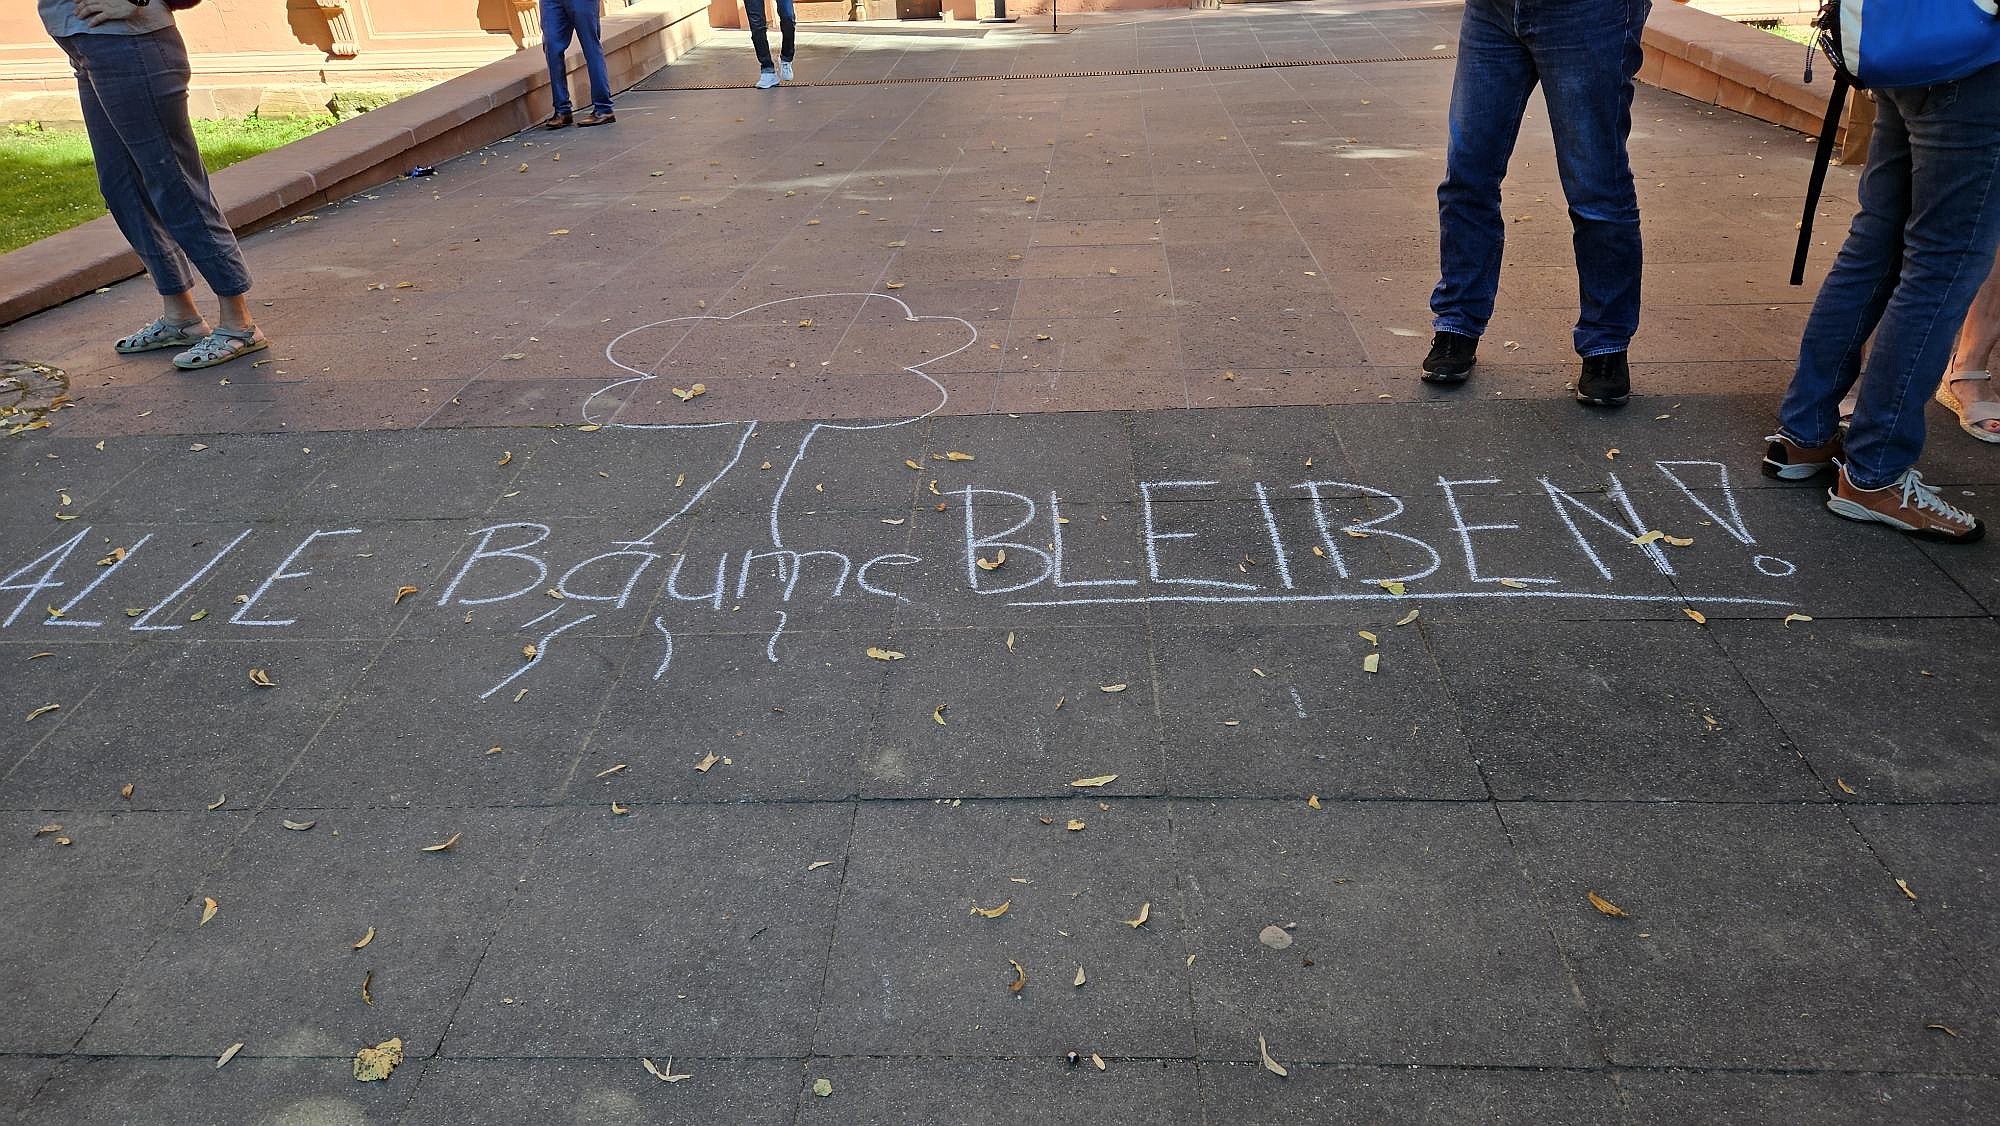 ALLE Bäume BLEIBEN!